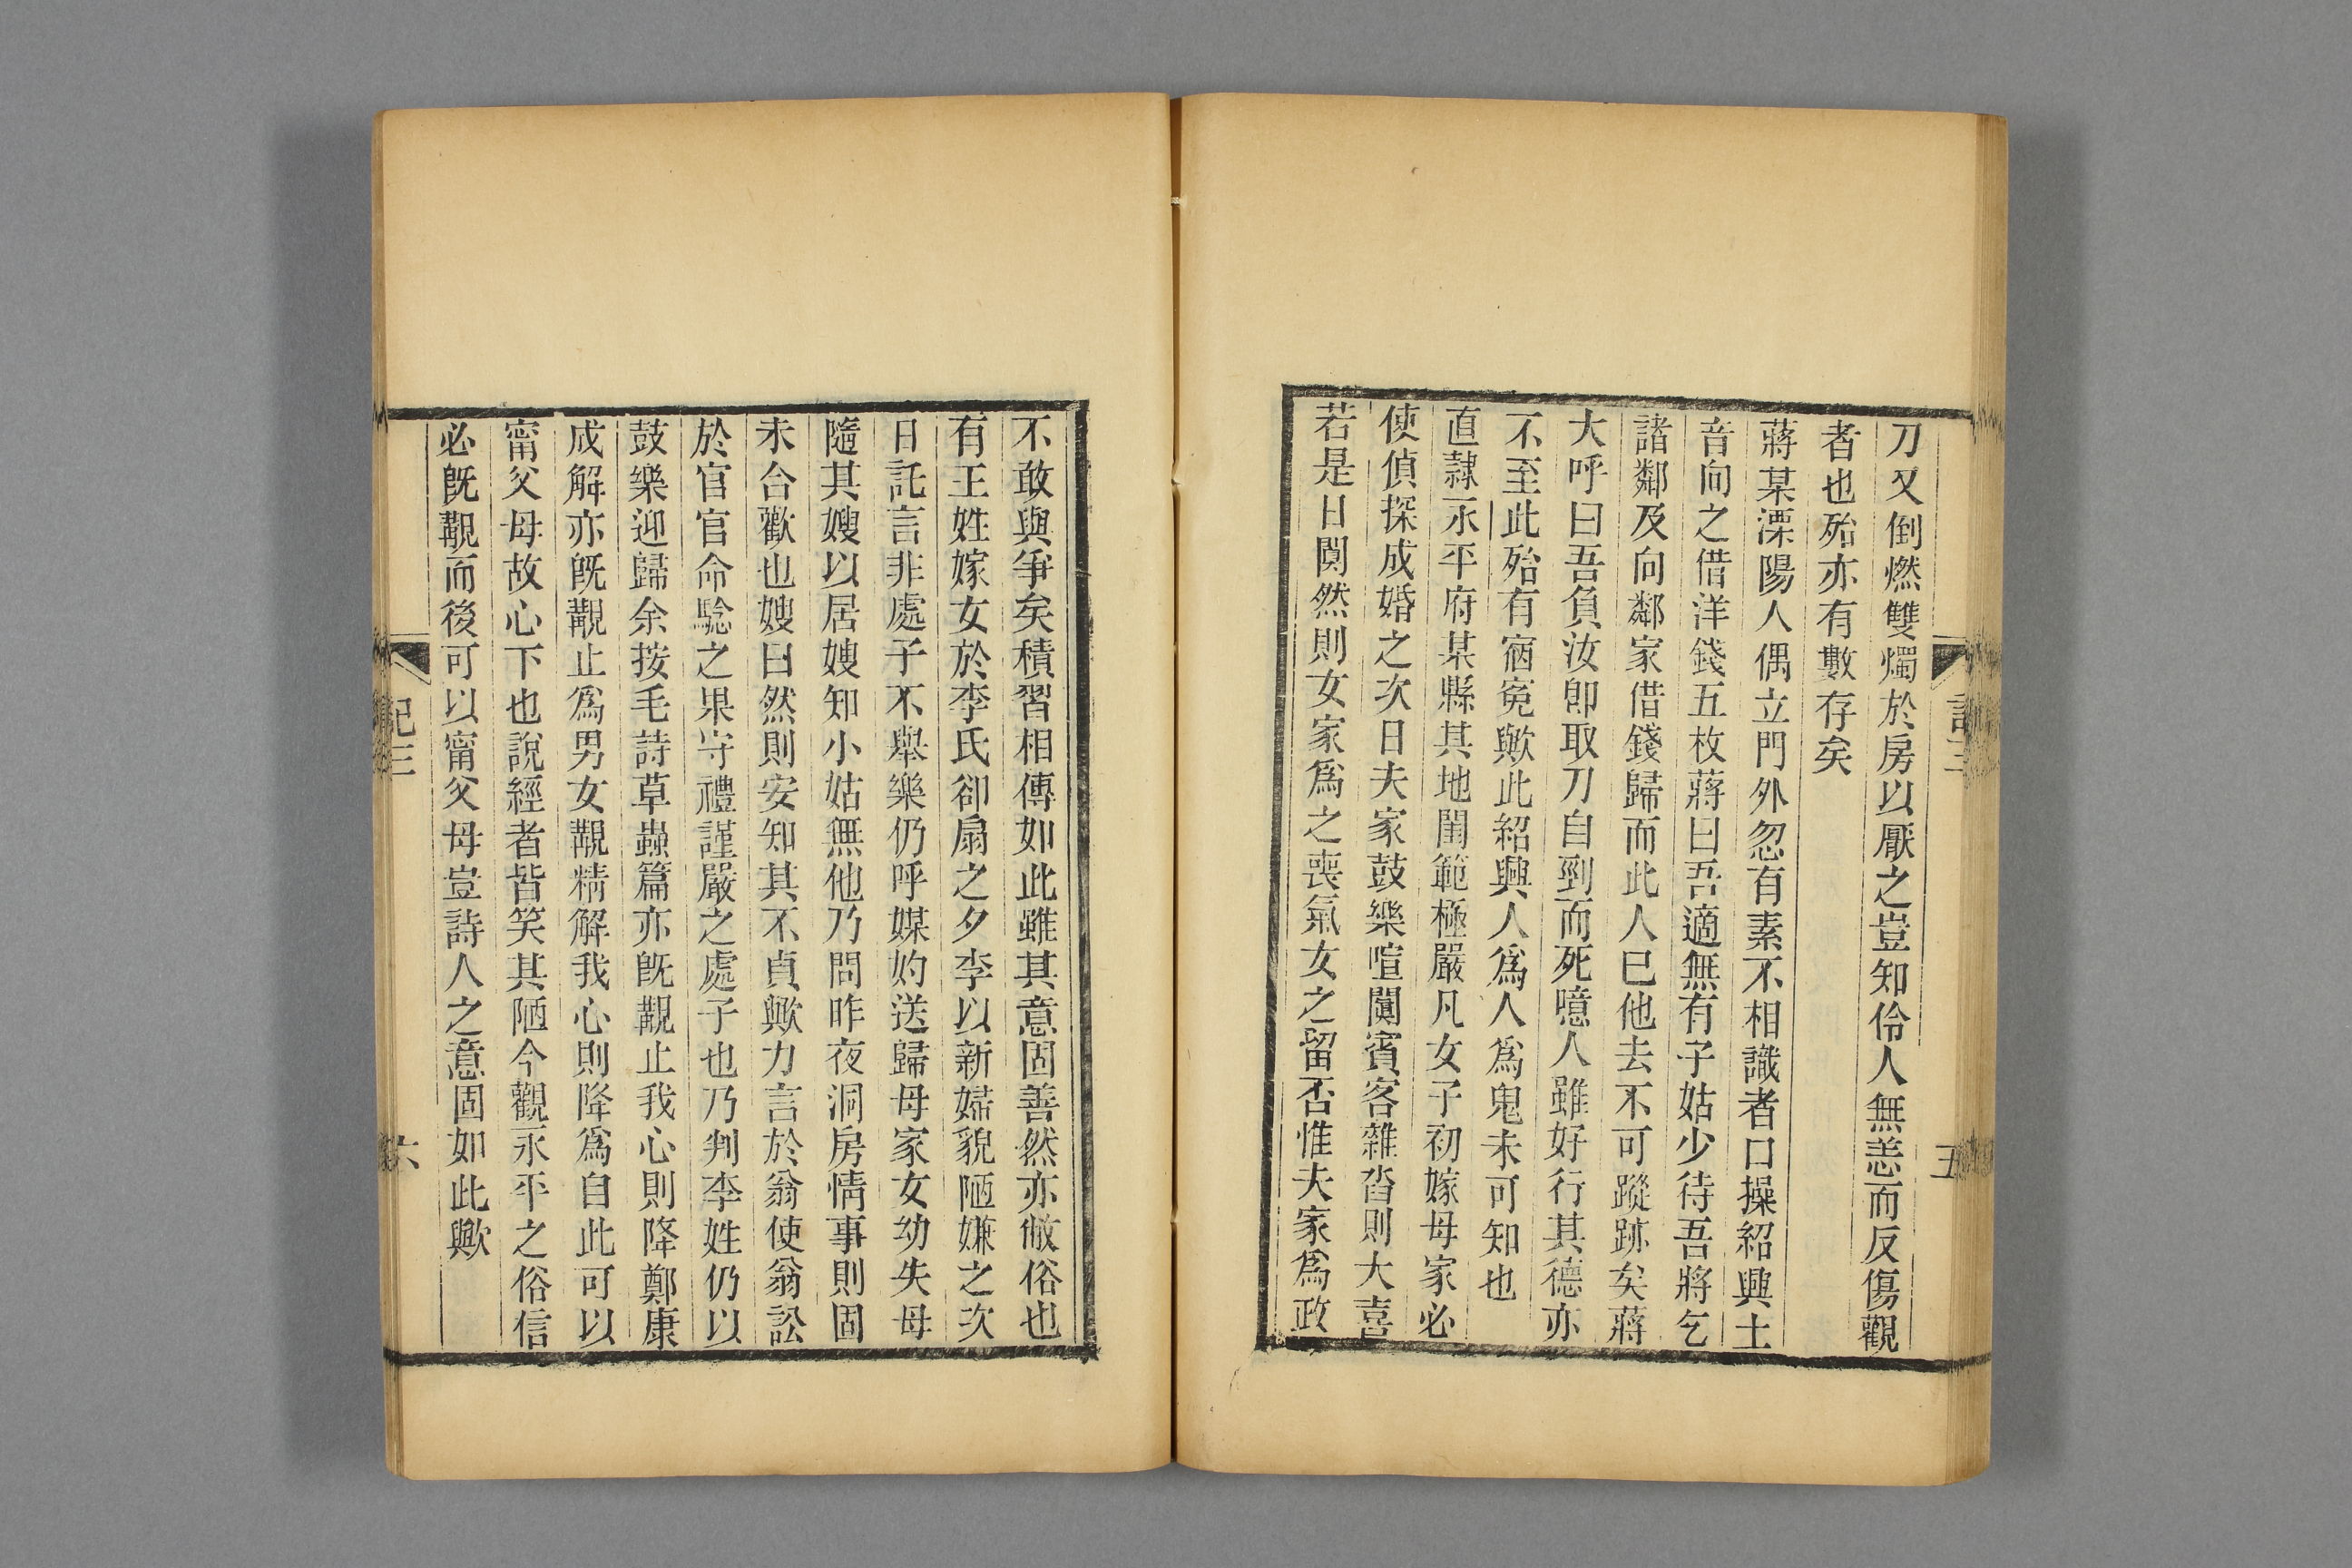 刀又倒燃雙燭於房以厭之豈知伶人無恙而反傷觀
者也殆亦有數存矣
蔣某溧陽人偶立門外忽有素不相識者口操紹興土
音向之借洋錢五枚蔣曰吾適無有子姑少待吾將乞
諸鄰及向鄰家借錢歸而此人已他去不可蹤跡矣蔣
大呼曰吾負汝即取刀自剄而死噫人雖好行其德亦
不至此殆有宿冤歟此紹興人為人為鬼未可知也
直隷永平府某縣其地閨範極嚴凡女子初嫁母家必
使偵探成婚之次日夫家鼓樂喧闐賓客雜沓則大喜
若是日闃然則女家為之喪氣女之留否惟夫家為政
不敢與爭矣積習相傳如此雖其意固善然亦敝俗也
有王姓嫁女於李氏卻扇之夕李以新婦貌陋嫌之次
日託言非處子不舉樂仍呼媒妁送歸母家女幼失母
隨其嫂以居嫂知小姑無他乃問昨夜洞房情事則固
未合歡也嫂曰然則安知其不貞歟力言於翁使翁訟
於官官命驗之果守禮謹嚴之處子也乃判李姓仍以
鼓樂迎歸余按毛詩草蟲篇亦既觀止我心則降鄭康
成解亦既觀止為男女觀精解我心則降為自此可以
甯父母故心下也說經者皆笑其陋今觀永平之俗信
必既觀而後可以甯父母豈詩人之意固如此歟
記三
六
五